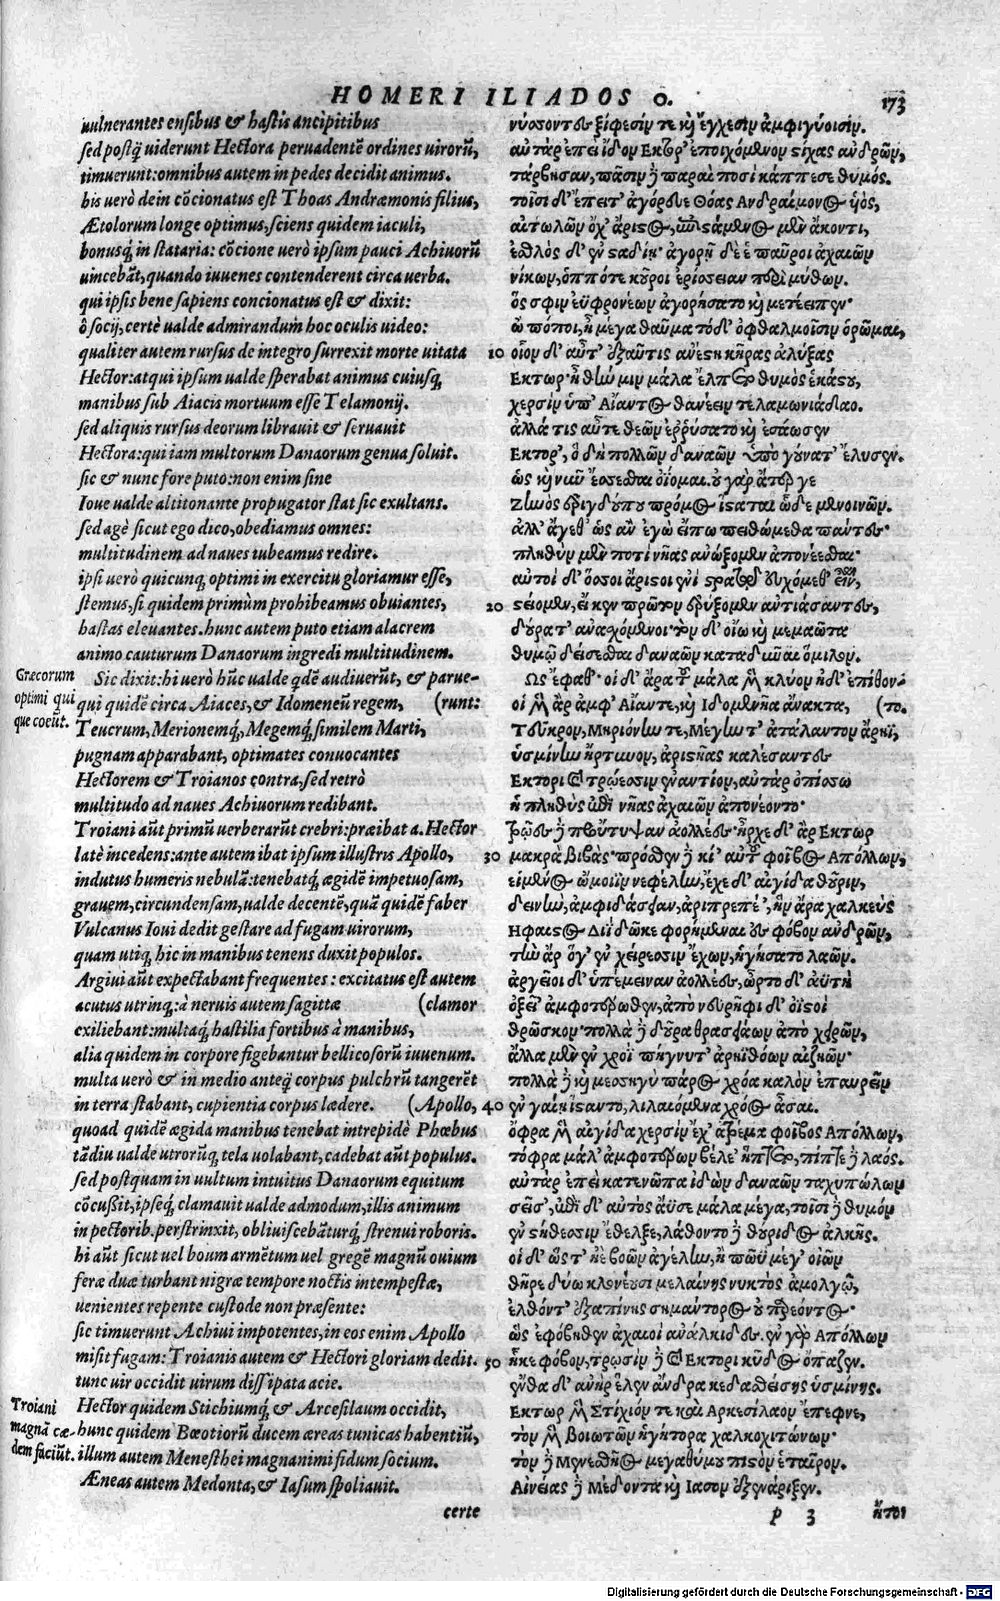 HOMERI ILIADOS O. 173
uulnerantes ensibus & hastis ancipitibus
sed postq̃ uiderunt Hectora peruadentẽ ordines uirorũ,
timuerunt: omnibus autem in pedes decidit animus.
his uerò dein cõcionatus est Thoas Andræmonis filius,
Ætolorum longe optimus, sciens quidem iaculi,
bonusq́; in stataria: cõcione uerò ipsum pauci Achiuorũ
uincebãt, quando iuuenes contenderent circa uerba.
qui ipsis bene sapiens concionatus est & dixit:
ô socij, certè ualde admirandum hoc oculis uideo:
qualiter autem rursus de integro surrexit morte uitata
Hector: atqui ipsum ualde sperabat animus cuiusq;
manibus sub Aiacis mortuum esse Telamonij.
sed aliquis rursus deorum librauit & seruauit
Hectora: qui iam multorum Danaorum genua soluit.
sic & nunc fore puto: non enim sine
Ioue ualde altitonante propugator stat sic exultans.
sed agè sicut ego dico, obediamus omnes:
multitudinem ad naues iubeamus redire.
ipsi uerò quicunq; optimi in exercitu gloriamur esse,
stemus, si quidem primùm prohibeamus obuiantes,
hastas eleuantes. hunc autem puto etiam alacrem
animo cauturum Danaorum ingredi multitudinem.
Sic dixit: hi uerò hũc ualde q̃dẽ audiuerũt, & parue-
qui quidẽ circa Aiaces, & Idomeneũ regem, (runt:
Teucrum, Merionemq́;, Megemq́; similem Marti,
pugnam apparabant, optimates conuocantes
Hectorem & Troianos contra, sed retrò
multitudo ad naues Achiuorum redibant.
Troiani aũt primũ uerberarũt crebri: præibat a. Hector
latè incedens: ante autem ibat ipsum illustris Apollo,
indutus humeris nebulã: tenebatq́; ægidẽ impetuosam,
grauem, circundensam, ualde decentẽ, quã quidẽ faber
Vulcanus Ioui dedit gestare ad fugam uirorum,
quam utiq; hic in manibus tenens duxit populos.
Argiui aũt expectabant frequentes: excitatus est autem
acutus utrinq;: à neruis autem sagittæ (clamor
exiliebant: multaq́; hastilia fortibus à manibus,
alia quidem in corpore figebantur bellicosorũ iuuenum.
multa uerò & in medio anteq̃ corpus pulchrũ tangerẽt
in terra stabant, cupientia corpus lædere. (Apollo,
quoad quidẽ ægida manibus tenebat intrepidè Phœbus
tãdiu ualde utrorũq; tela uolabant, cadebat aũt populus.
sed postquam in uultum intuitus Danaorum equitum
cõcussit, ipseq́; clamauit ualde admodum, illis animum
in pectorib. perstrinxit, obliuiscebãturq́; strenui roboris.
hi aũt sicut uel boum armẽtum uel gregẽ magnũ ouium
feræ duæ turbant nigræ tempore noctis intempestæ,
uenientes repente custode non præsente:
sic timuerunt Achiui impotentes, in eos enim Apollo
misit fugam: Troianis autem & Hectori gloriam dedit.
tunc uir occidit uirum dissipata acie.
Hector quidem Stichiumq́; & Arcesilaum occidit,
hunc quidem Bœotiorũ ducem æreas tunicas habentiũ,
illum autem Menesthei magnanimi fidum socium.
Æneas autem Medonta, & Iasum spoliauit.
certe
Græcorum
optimi qui
que coeũt.
Troiani
magnã cæ-
dem faciũt.
νύσσοντες ξίφεσίν τε καὶ ἔγχεσιν ἀμφιγύοισιν.
αὐτὰρ ἐπεὶ ἴδον Εκτορ' ἐποιχόμενον στίχας ἀνδρῶν,
τάρβησαν, πᾶσιν δὲ παραὶ ποσὶ κάππεσε θυμός.
τοῖσι δ' ἔπειτ' ἀγόρευε Θόας Ανδραίμονος υἱός,
αἰτωλῶν ὄχ' ἄριστος, ἐπιστάμενος μὲν ἄκοντι,
ἐσθλὸς δ' ἐν σταδίῃ· ἀγορῇ δέ ἑ παῦροι ἀχαιῶν
νίκων, ὁππότε κοῦροι ἐρίσσειαν περὶ μύθων.
ὅς σφιν ἐϋφρονέων ἀγορήσατο καὶ μετέειπεν·
ὢ πόποι, ἦ μέγα θαῦμα τόδ' ὀφθαλμοῖσιν ὁρῶμαι,
10 οἷον δ' αὖτ' ἐξαῦτις ἀνέστη κῆρας ἀλύξας
Εκτωρ· ἦ θήν μιν μάλα ἔλπετο θυμὸς ἑκάστου,
χερσὶν ὑπ' Αἴαντος θανέειν τελαμωνιάδαο.
ἀλλά τις αὖτε θεῶν ἐῤῥύσατο καὶ ἐσάωσεν
Εκτορ', ὃ δὴ πολλῶν δαναῶν ὑπὸ γούνατ' ἔλυσεν.
ὡς καὶ νῦν ἔσσεσθαι ὀΐομαι. οὐ γὰρ ἄτερ γε
Ζηνὸς ἐριγδούπου πρόμος ἵσταται ὧδε μενοινῶν.
ἀλλ' ἄγεθ' ὡς ἂν ἐγὼ εἴπω πειθώμεθα πάντες·
πληθὺν μὲν ποτὶ νῆας ἀνώξομεν ἀπονέεσθαι·
αὐτοὶ δ' ὅσσοι ἄριστοι ἐνὶ στρατῷ εὐχόμεθ' εἶναι,
20 στείομεν, εἴ κεν πρῶτον ἐρύξομεν ἀντιάσαντες,
δούρατ' ἀνασχόμενοι· τὸν δ' οἴω καὶ μεμαῶτα
θυμῷ δείσεσθαι δαναῶν καταδῦναι ὅμιλον.
Ως ἔφαθ'· οἱ δ' ἄρα τοῦ μάλα μὲν κλύον ἠδ' ἐπίθον-
οἱ μὲν ἂρ ἀμφ' Αἴαντε, καὶ Ιδομενῆα ἄνακτα, (το.
Τεῦκρον, Μηριόνην τε, Μέγην τ' ἀτάλαντον ἄρηϊ,
ὑσμίνην ἤρτυνον, ἀριστῆας καλέσαντες
Εκτορι καὶ τρώεσσιν ἐναντίον, αὐτὰρ ὀπίσσω
ἡ πληθὺς ἐπὶ νῆας ἀχαιῶν ἀπονέοντο·
τρῶες δὲ προὔτυψαν ἀολλέες· ἦρχε δ' ἂρ Εκτωρ
30 μακρὰ βιβάς· πρόσθεν δὲ κί' αὐτοῦ φοῖβος Απόλλων,
εἱμένος ὤμοιϊν νεφέλην, ἔχε δ' αἰγίδα θοῦριν,
δεινήν, ἀμφιδάσειαν, ἀριπρεπέ', ἣν ἄρα χαλκεὺς
Ηφαιστος Διῒ δῶκε φορήμεναι ἐς φόβον ἀνδρῶν,
τὴν ἂρ ὅγ' ἐν χείρεσσιν ἔχων, ἡγήσατο λαῶν.
ἀργεῖοι δ' ὑπέμειναν ἀολλέες, ὦρτο δ' ἀϋτὴ
ὀξεῖ' ἀμφοτέρωθεν, ἀπὸ νευρῆφι δ' ὀϊστοὶ
θρῶσκον· πολλὰ δὲ δοῦρα θρασειάων ἀπὸ χειρῶν,
ἄλλα μὲν ἐν χροῒ πήγνυτ' ἀρηϊθόων αἰζηῶν·
πολλὰ δὲ καὶ μεσσηγὺ πάρος χρόα καλὸν ἐπαυρεῖν
40 ἐν γαίῃ ἵσταντο, λιλαιόμενα χροὸς ἆσαι.
ὄφρα μὲν αἰγίδα χερσὶν ἔχ' ἀτρέμα φοῖβος Απόλλων,
τόφρα μάλ' ἀμφοτέρων βέλε' ἥπτετο, πίπτε δὲ λαός.
αὐτὰρ ἐπεὶ κατενῶπα ἰδὼν δαναῶν ταχυπώλων
σεῖσ', ἐπὶ δ' αὐτὸς ἄϋσε μάλα μέγα, τοῖσι δὲ θυμὸν
ἐν στήθεσσιν ἔθελξε, λάθοντο δὲ θούριδος ἀλκῆς.
οἱ δ' ὥς τ' ἠὲ βοῶν ἀγέλην, ἢ πῶϋ μέγ' οἰῶν
θῆρε δύω κλονέουσι μελαίνης νυκτὸς ἀμολγῷ,
ἐλθόντ' ἐξαπίνης σημάντορος οὐ παρεόντος·
ὣς ἐφόβηθεν ἀχαιοὶ ἀνάλκιδες. ἐν γὰρ Απόλλων
50 ἧκε φόβον, τρωσὶν δὲ καὶ Εκτορι κῦδος ὄπαζεν.
ἔνθα δ' ἀνὴρ ἕλεν ἄνδρα κεδασθείσης ὑσμίνης.
Εκτωρ μὲν Στίχιόν τε καὶ Αρκεσίλαον ἔπεφνε,
τὸν μὲν βοιωτῶν ἡγήτορα χαλκοχιτώνων·
τὸν δὲ Μενεσθῆος μεγαθύμου πιστὸν ἑταῖρον.
Αἰνείας δὲ Μέδοντα καὶ Ιασον ἐξενάριξεν.
p 3 ἤτοι
Digitalisierung gefördert durch die Deutsche Forschungsgemeinschaft - DFG